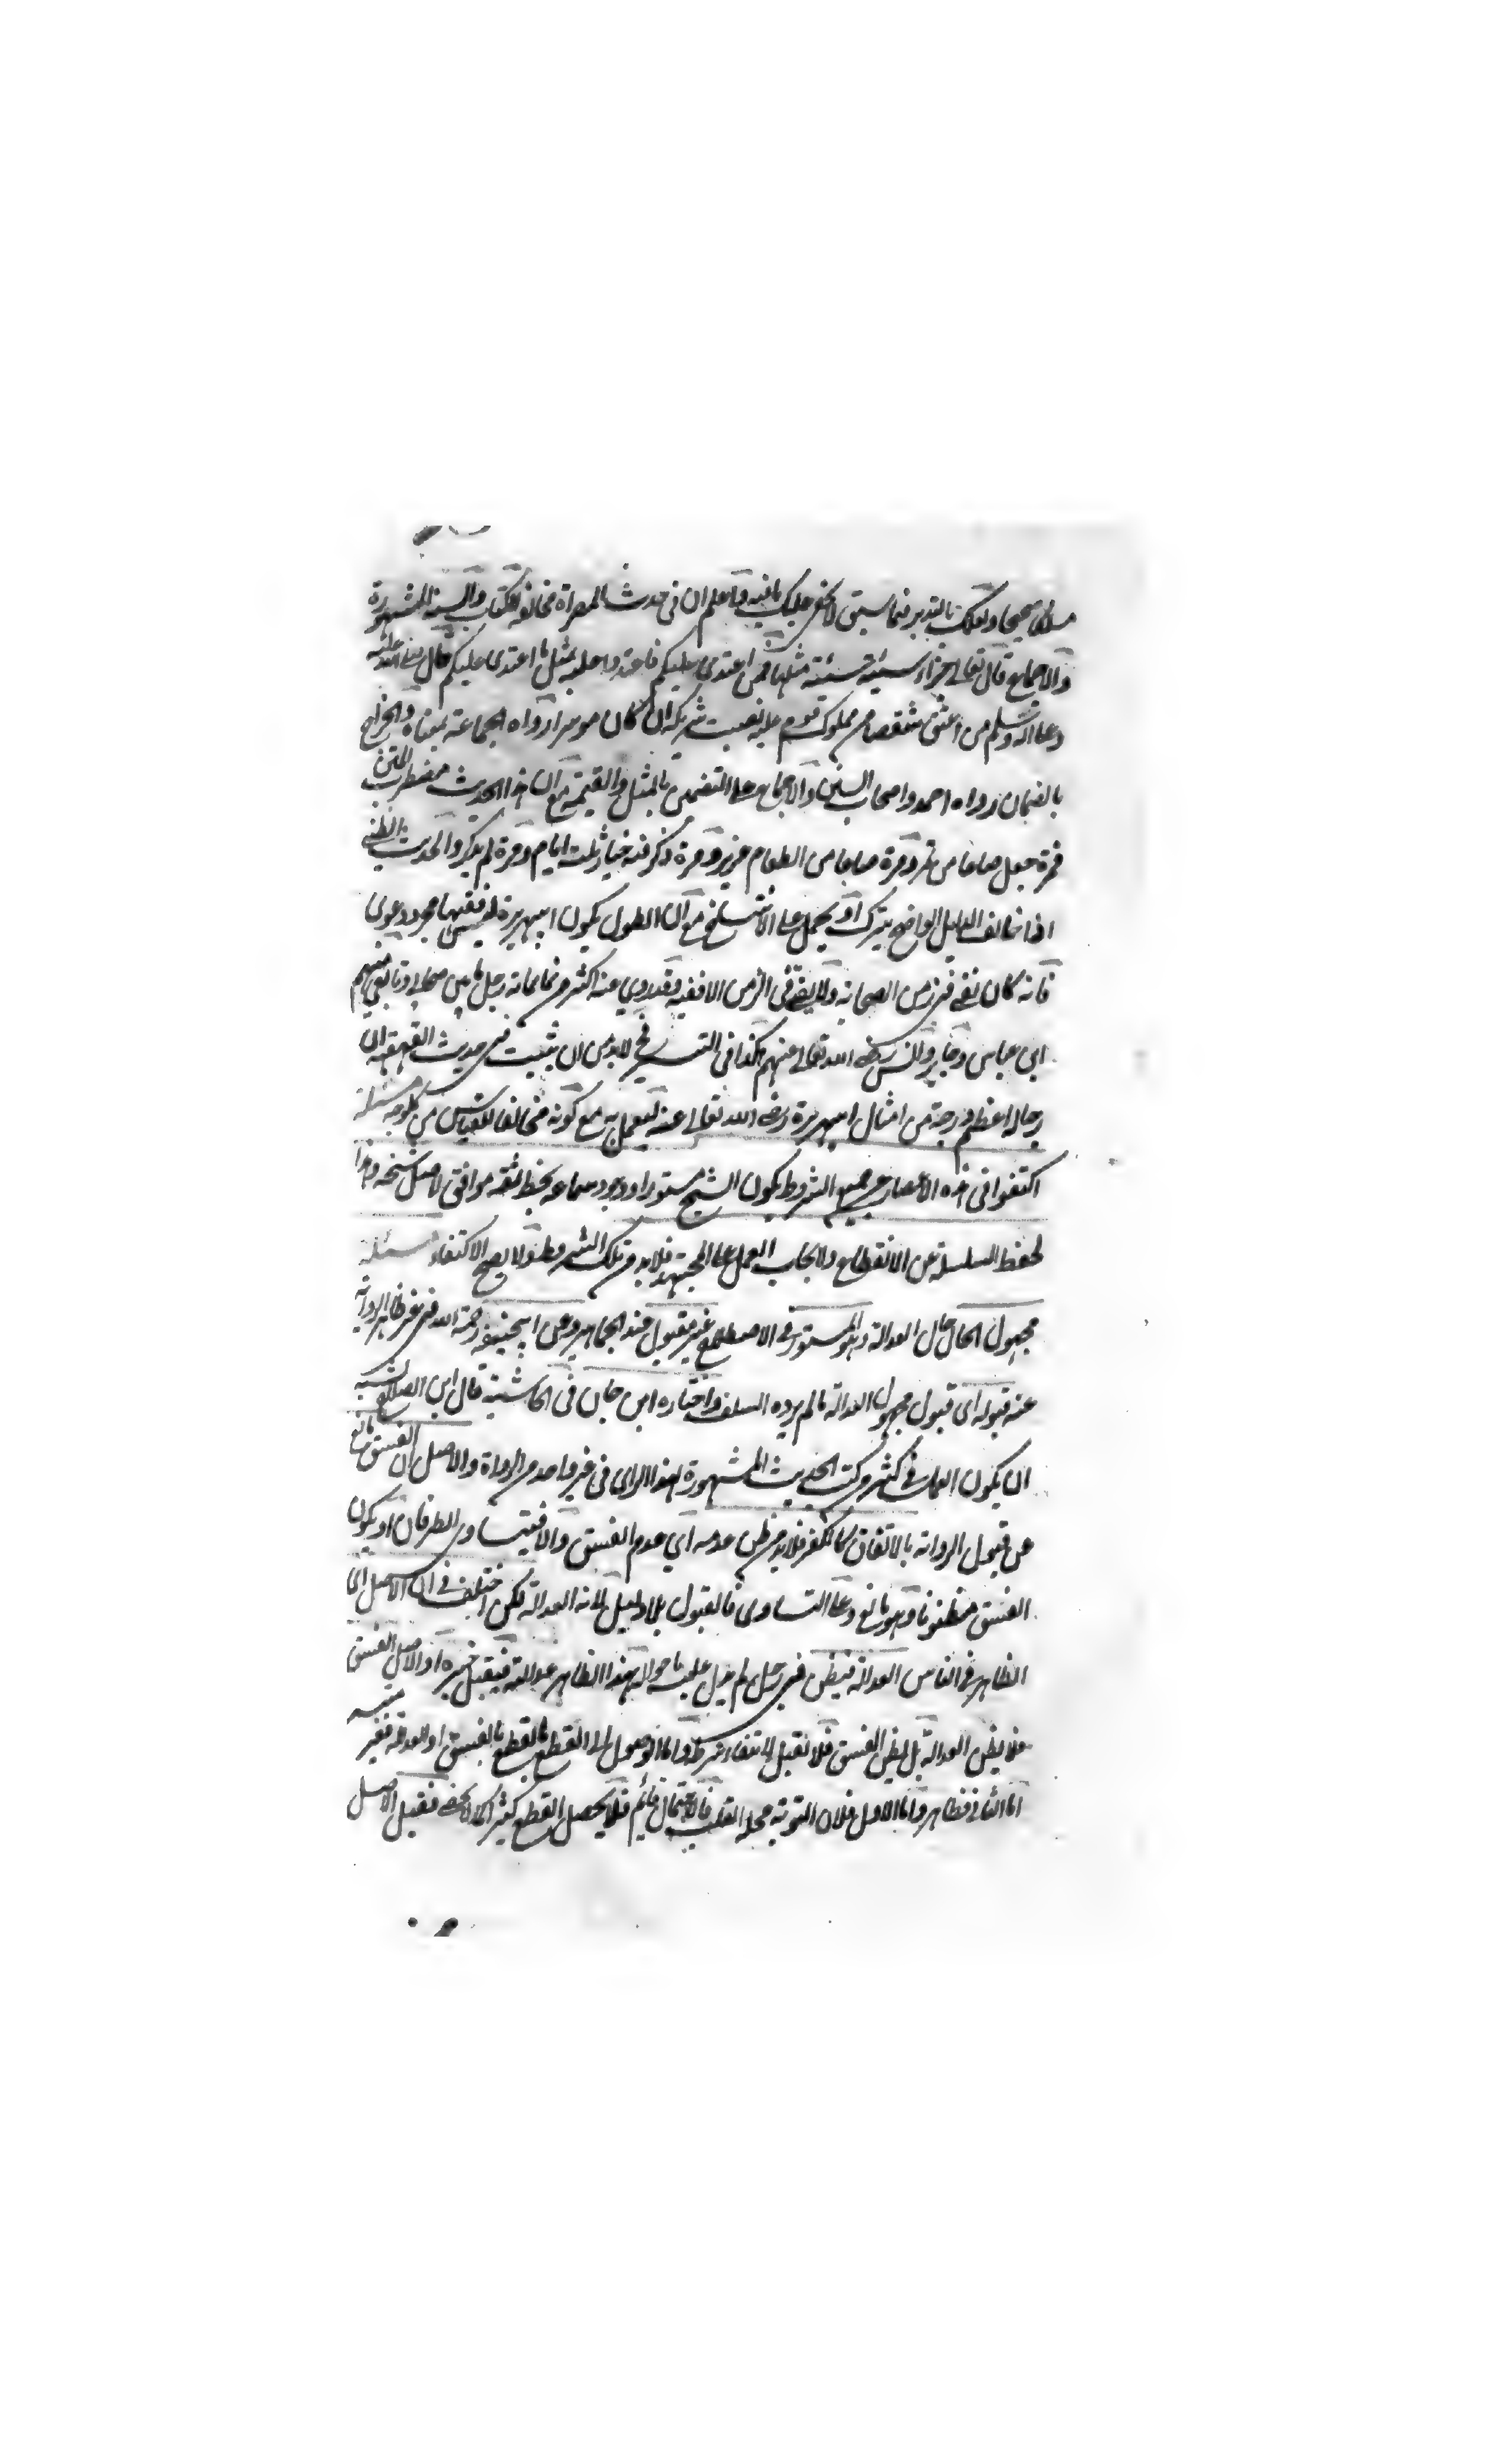 ولعلك بالتدبر فيما سبق لا يخفى عليك ما فيه واعلم ان فى حديث المصراة مخالفة الكتاب والسنة المشهورة
والاجماع قال تعالى جزاء سيئة سيئة مثلها فمن اعتدى عليكم فاعتدوا عليه بمثل ما اعتدى عليكم قال صلى الله عليه
وعلى اله وسلم من اعتق شقصا من مملوك قوم عليه نصيب شريكه ان كان موسرا رواه الجماعة بمعناه والخراج
بالضمان رواه احمد واصحاب السنن والاجماع على التضمين بالمثل والقيمة مع ان هذا الحديث مضطرب المتن
فمرة جعل صاعا من تمر ومرة صاعا من الطعام غير بر ومرة ذكر فيه خيار ثلث ايام ومرة لم يذكر والحديث الظنى
اذا خالف الدليل الواضح يترك او يحمل على الانتساخ مع ان الطول يكون ابيهريرة ليس فقيها مجرد دعوى
فانه كان يفتى فى زمن الصحابة ولا يفتى فى الزمن الا فقيه وقد روى عنه اكثر من ثمانمائة رجل ما بين صحابى وتابعى منهم
ابن عباس وجابر وانس رضى الله تعالى عنهم هكذا فى لا بد من ان يثبت فى حديث القهقهة ان
رجاله اعظم درجة من امثال ابيهريرة رضى الله تعالى عنه ليعمل به مع كونه مخالفا للقياس من كل وجه مسئلة
اكتفوا فى هذه الاعصار عن جميع الشروط بكون الشيخ مستورا ووجود سماعه بخط ثقة موافق لاصل شيخه وهذا
لحفظ السلسلة عن الانقطاع ولايجاب العمل على المجتهد فلا بد من تلك الشروط ولا يصح الاكتفاء مسئلة
مجهول الحال حال العدالة وهو المستور فى الاصطلاح غير مقبول عند الجماهير وعن ابيحنيفة رحمة الله فى غير ظاهر الرواية
عنه قبوله اى قبول مجهول العدالة ما لم يرده السلف واختاره ابن حبان فى الحاشية قال ابن الصلاح يشبه
ان يكون العمل فى كثير من كتب الحديث المشهورة بهذا الراى فى غير واحد من الرواة والاصل ان الفسق مانع
عن قبول الرواية بالاتفاق كالكفر فلا بد من ظن عدمه اى عدم الفسق والا فيتساوى الطرفان او يكون
الفسق مظنونا وهو مانع وعلى التساوى فالقبول بلا دليل لانه العدالة لكن اختلف فى ان الاصل اى
الظاهر فى الناس العدالة فيظن فى رجل لم يدل عليه ما حواله بهذا الظاهر عدالته فيقبل خبره او الاصل الفسق
فلا يظن العدالة بل يظن الفسق فلا تقبل لانتفاء شرطه واما الوصول الى القطع فالقطع بالفسق او العدالة فغير
اما الثانى فظاهر واما الاول فلان التوبة محله القلب فالاحتمال قائم فلا يحصل القطع كثيرا كما لا يخفى فقيل الاصل